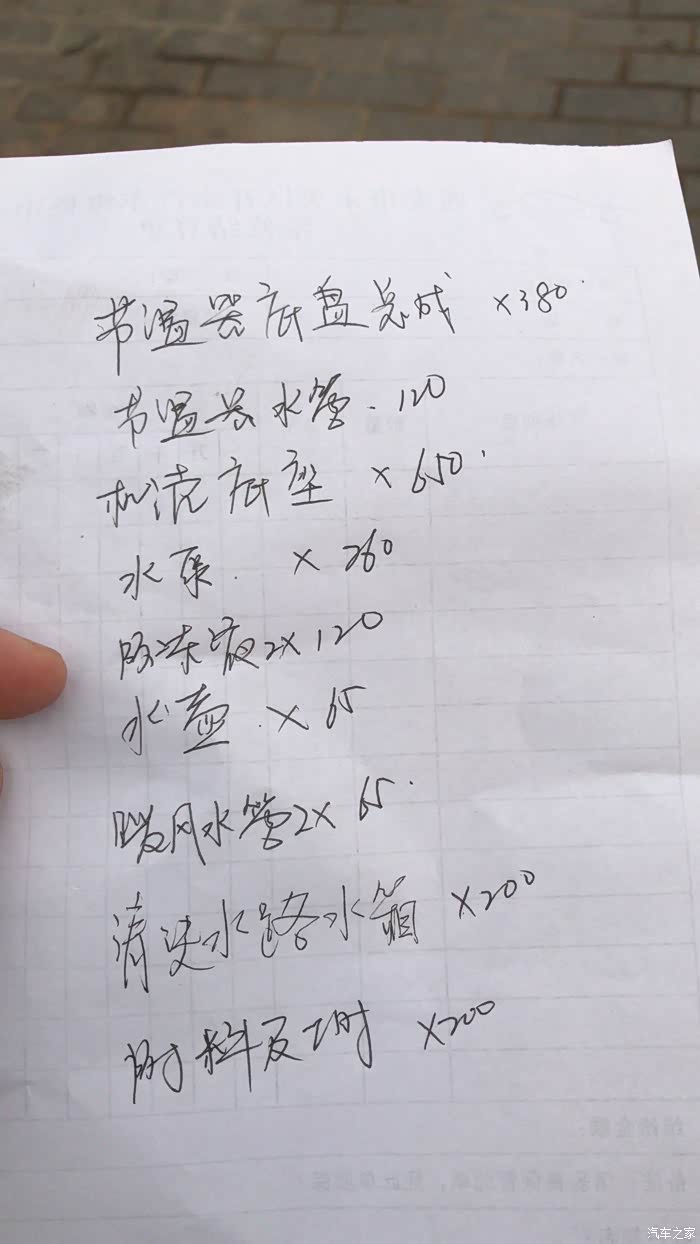 节温器底盘总成 ×380
节温器水管. 120
机壳底座 ×650
水泵. ×260
防冻液2×120
水壶.×65
暖风水管2×65.
清洗水路水箱 ×200
附料及工时 ×200
结算金额:
汽车之家